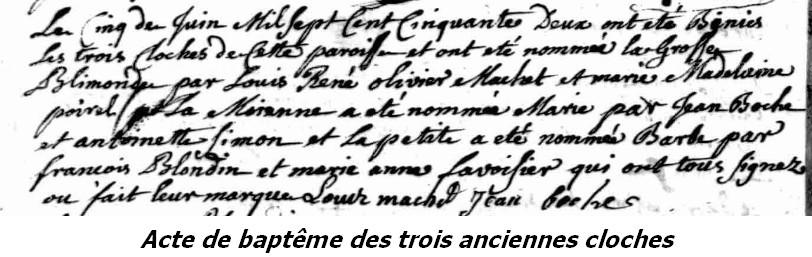 Le Cinq de Juin Mil sept Cent Cinquante Deux ont eté Benies
Les trois Cloches de Cette paroisse et ont eté nommée la Grosse
Blimonde par Louis René olivier Machet et marie Madelaine
poirel La Moienne a eté nommée Marie par Jean Boche
et antoinette Simon et La petite a eté nommée Barbe par
francois Blondin et marie anne favoisier qui ont tous signez
ou fait leur marque Jean boche
Acte de baptême des trois anciennes cloches